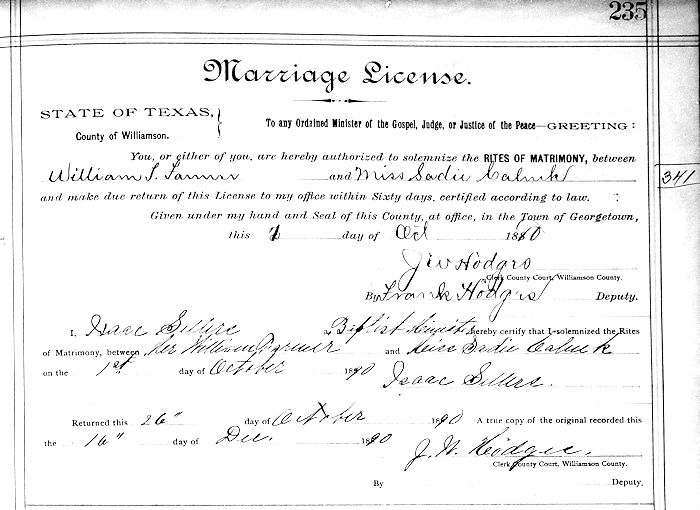 235
Marriage License.
STATE OF TEXAS,
County of Williamson.
To any Ordained Minister of the Gospel, Judge, or Justice of the Peace—GREETING:
You, or either of you, are hereby authorized to solemnize the RITES OF MATRIMONY, between
William S. and Miss Sadie
341
and make due return of this License to my office within Sixty days, certified according to law.
Given under my hand and Seal of this County, at office, in the Town of Georgetown,
this 1 day of Oct 1890
J W Hodges
Clerk County Court, Williamson County.
By Frank Hodges Deputy.
I, Isaac Sellers Baptist Minister hereby certify that I solemnized the Rites
of Matrimony, between Mr William and Miss Sadie
on the 1st day of October 1890
Isaac Sellers.
Returned this 26" day of October 1890 A true copy of the original recorded this
the 16" day of Dec. 1890
J. W. Hodges.
Clerk County Court, Williamson County.
By Deputy.